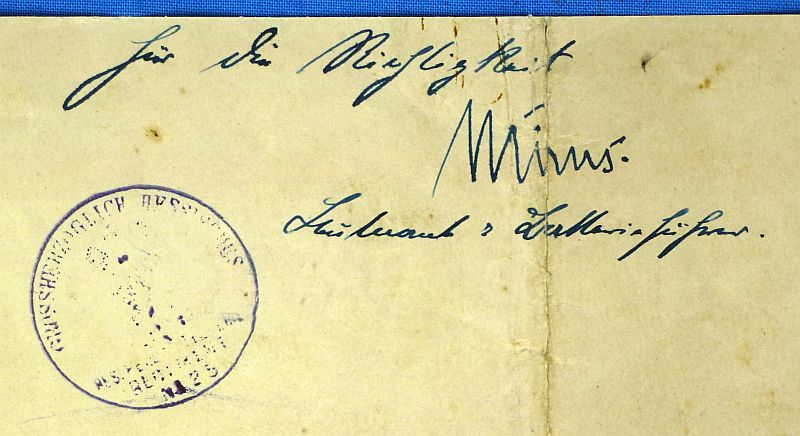 Für die Richtigkeit
Mirus.
Leutnant & Batterieführer.
GROSSHERZOGLICH HESSISCHES
REGIMENT
No 25